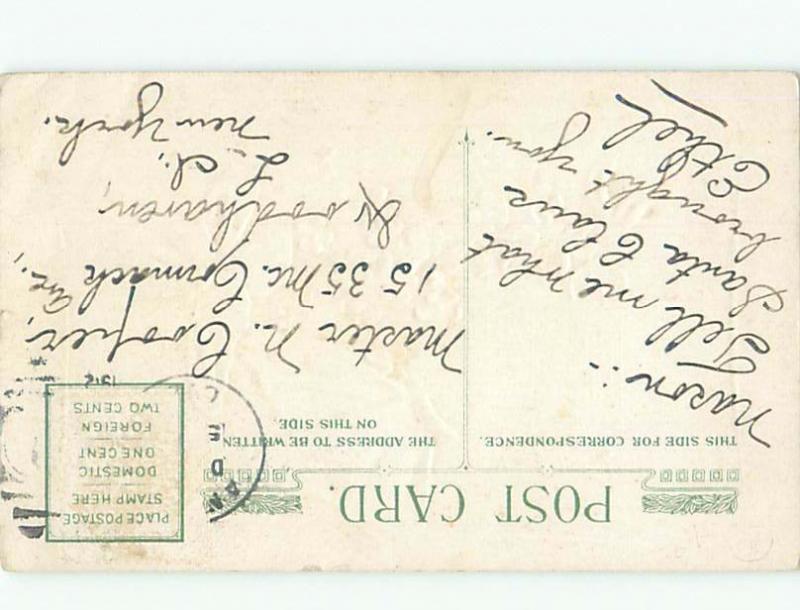 POST CARD.
THIS SIDE FOR CORRESPONDENCE.
THE ADDRESS TO BE WRITTEN
ON THIS SIDE.
PLACE POSTAGE
STAMP HERE
DOMESTIC
ONE CENT
FOREIGN
TWO CENTS
1912
Nason:-
Tell me what
Santa Claus
brought you.
Ethel
Master N. Cooper,
1535 Mc. Cormack Ave.,
Woodhaven,
L. I.,
New York.